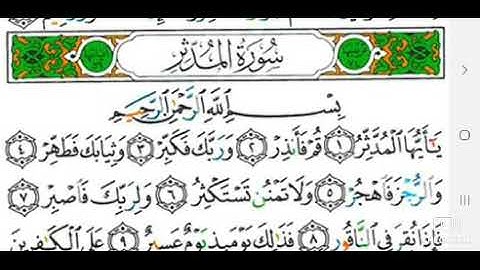 سُورَةُ المُدَّثِّر
بِسْمِ اللَّهِ الرَّحْمَٰنِ الرَّحِيمِ
يَٰٓأَيُّهَا الْمُدَّثِّرُ ١ قُمْ فَأَنذِرْ ٢ وَرَبَّكَ فَكَبِّرْ ٣ وَثِيَابَكَ فَطَهِّرْ ٤
وَالرُّجْزَ فَاهْجُرْ ٥ وَلَا تَمْنُن تَسْتَكْثِرُ ٦ وَلِرَبِّكَ فَاصْبِرْ ٧
فَإِذَا نُقِرَ فِي النَّاقُورِ ٨ فَذَٰلِكَ يَوْمَئِذٍ يَوْمٌ عَسِيرٌ ٩ عَلَى الْكَٰفِرِينَ